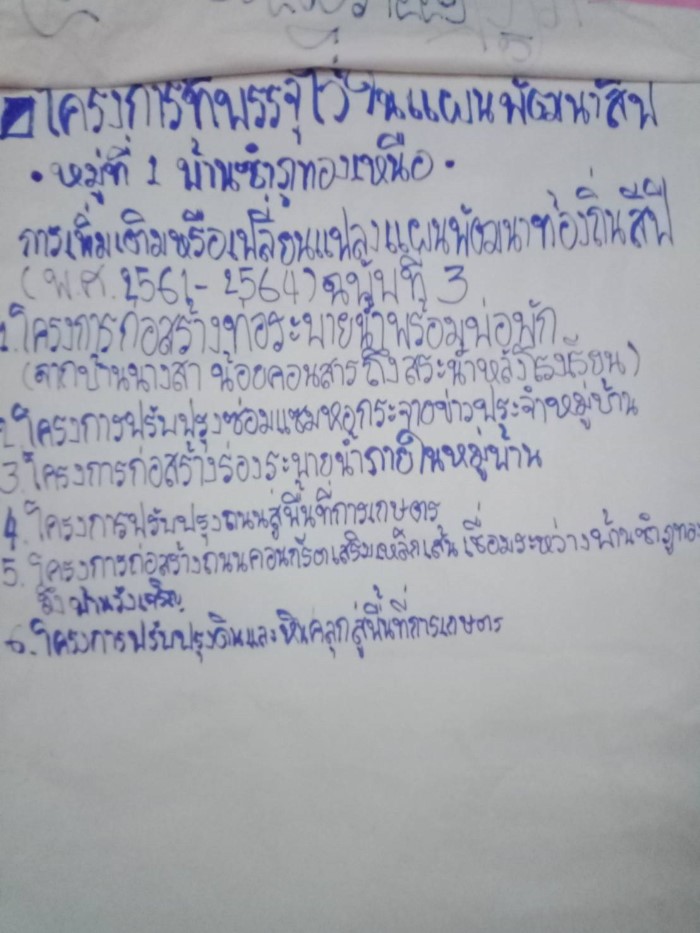 โครงการที่บรรจุไว้ในแผนพัฒนาสี่ปี
• หมู่ที่ 1 บ้านซำภูทองเหนือ •
การเพิ่มเติมหรือเปลี่ยนแปลงแผนพัฒนาท้องถิ่นสี่ปี
(พ.ศ. 2561 - 2564) ฉบับที่ 3
1. โครงการก่อสร้างท่อระบายน้ำพร้อมบ่อพัก
(จากบ้านนางสา น้อยคอนสาร ถึงสระน้ำหลังโรงเรียน)
2. โครงการปรับปรุงซ่อมแซมหอกระจายข่าวประจำหมู่บ้าน
3. โครงการก่อสร้างร่องระบายน้ำภายในหมู่บ้าน
4. โครงการปรับปรุงถนนสู่พื้นที่การเกษตร
5. โครงการก่อสร้างถนนคอนกรีตเสริมเหล็กเส้น เชื่อมระหว่างบ้านซำภูทอง
ถึง บ้านวังเจริญ
6. โครงการปรับปรุงดินและหินคลุกสู่พื้นที่การเกษตร